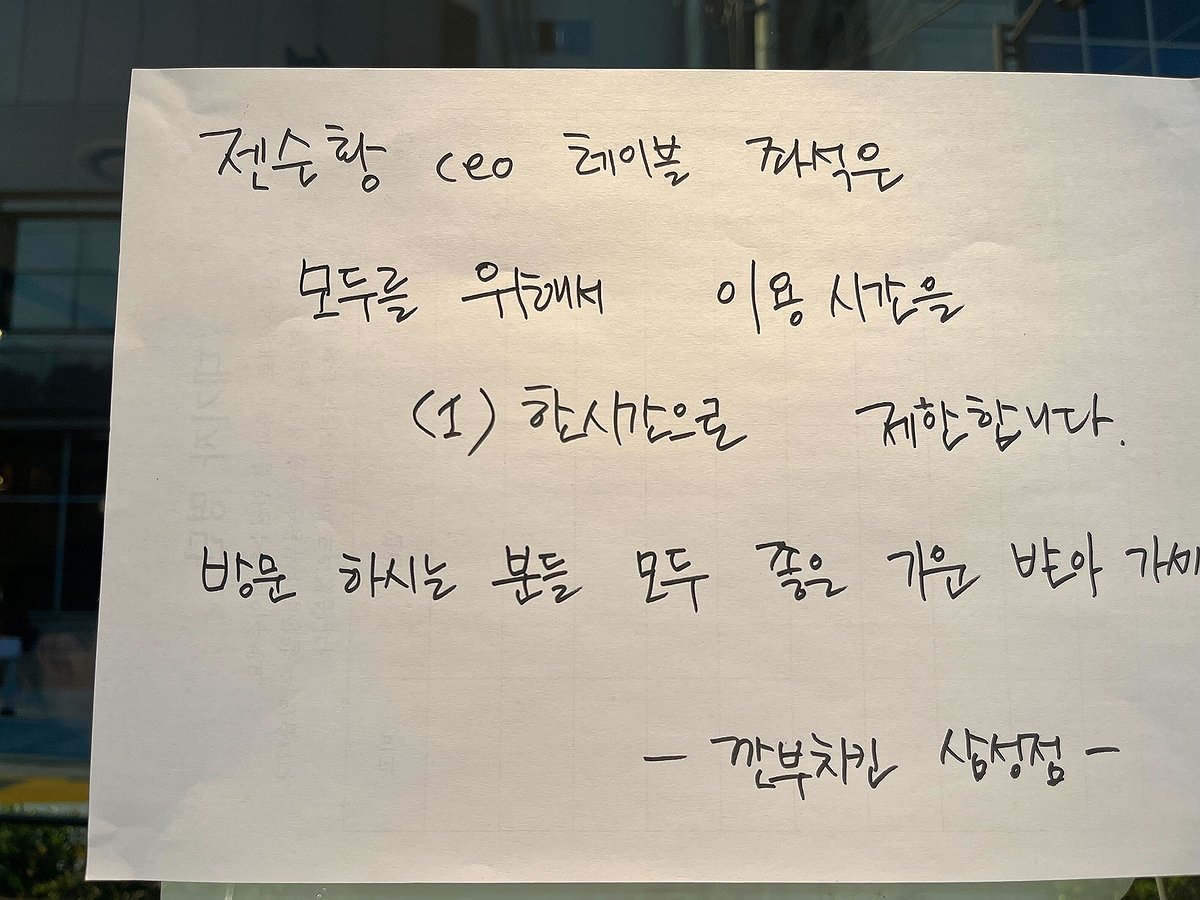 젠슨황 ceo 테이블 좌석은
모두를 위해서 이용 시간을
(1) 한시간으로 제한합니다.
방문 하시는 분들 모두 좋은 기운 받아 가세
- 깐부치킨 삼성점 -